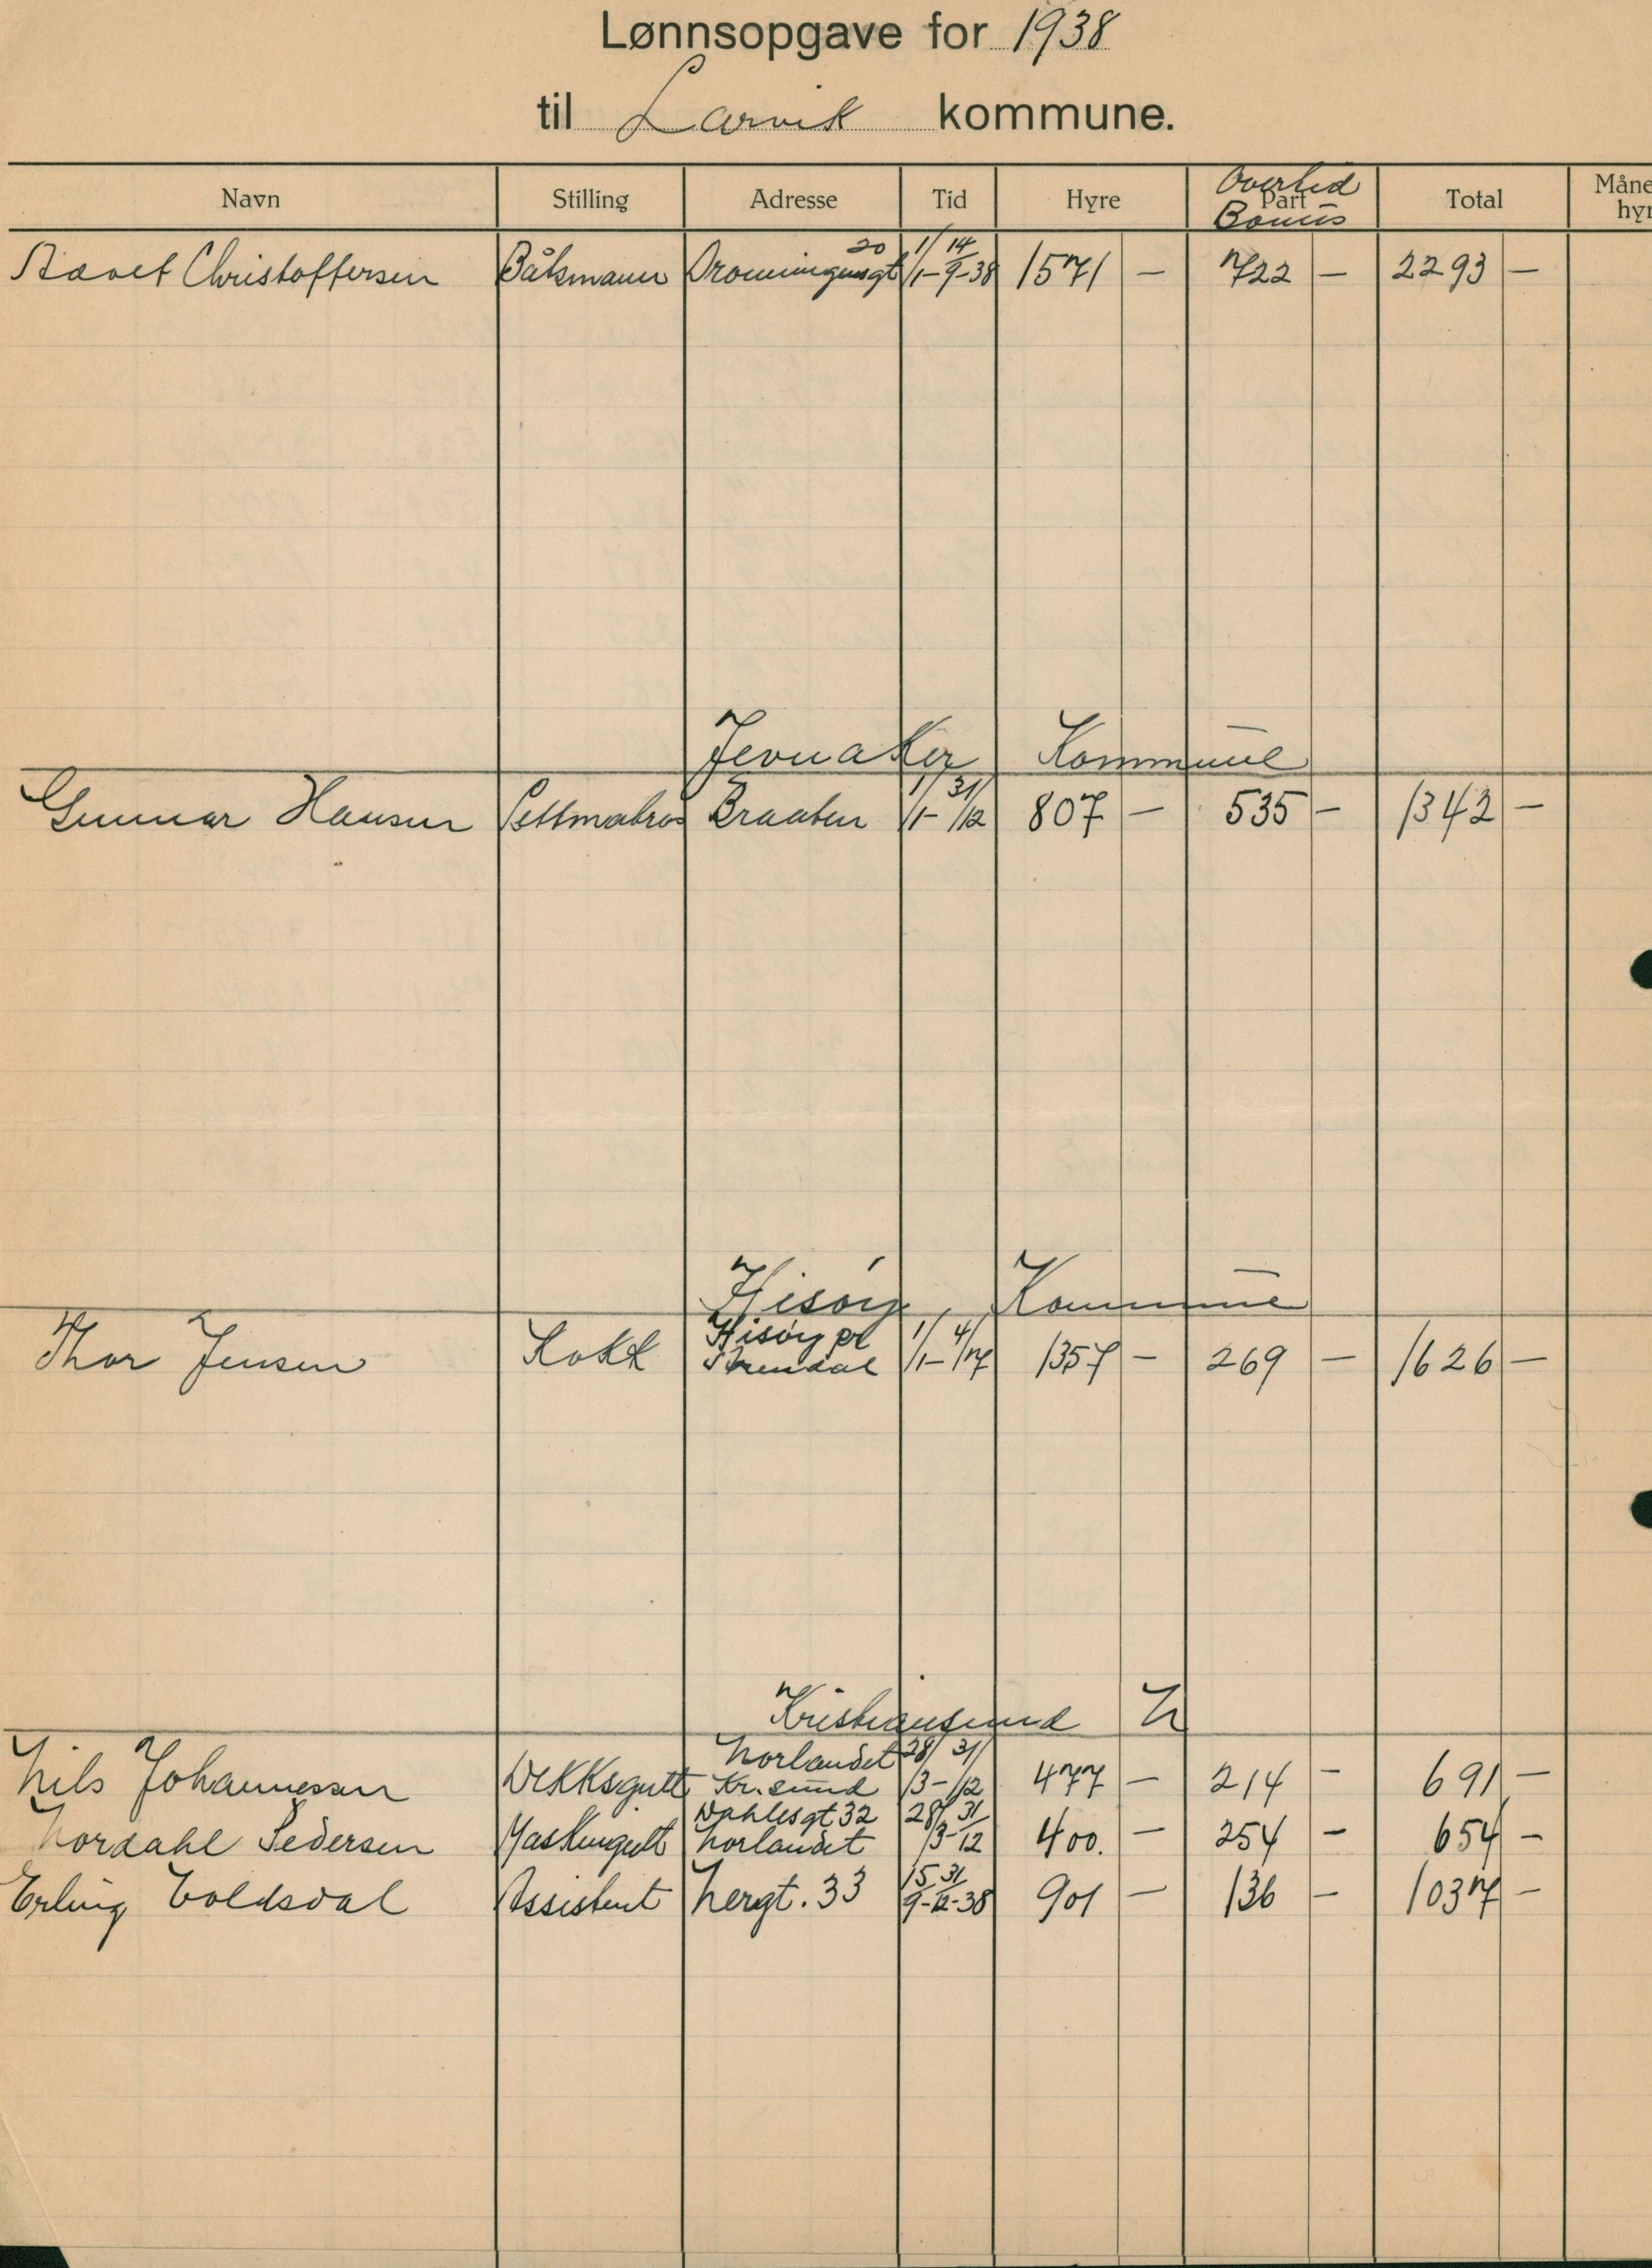 Lønnsopgave for 1938
til Larvik kommune.
Navn Stilling Adresse Tid Hyre Overtid Part Bonus Total Måne hyr
Christoffersen Båtsmann Dronningensgt 20 1/1-14/9-38 1571 - 722 - 2293 -
Jevnaker Kommune
Gunnar Hansen Lettmatros Braaten 1/1-31/12 807 - 535 - 1342 -
Hisøy, Kommune
Thor Jensen Kokk Hisøy pr Arendal 1/1-4/7 1357 - 269 - 1626 -
Kristiansund N
Nils Johannessen Dekksgutt Norlandet Kr.sund 28/3-31/12 477 - 214 - 691 -
Nordahl Pedersen Maskingutt Dahlesgt 32 Norlandet 28/3-31/12 400. - 254 - 654 -
Erling Voldsdal Assistent Nergt. 33 15/9-31/12-38 901 - 136 - 1037 -